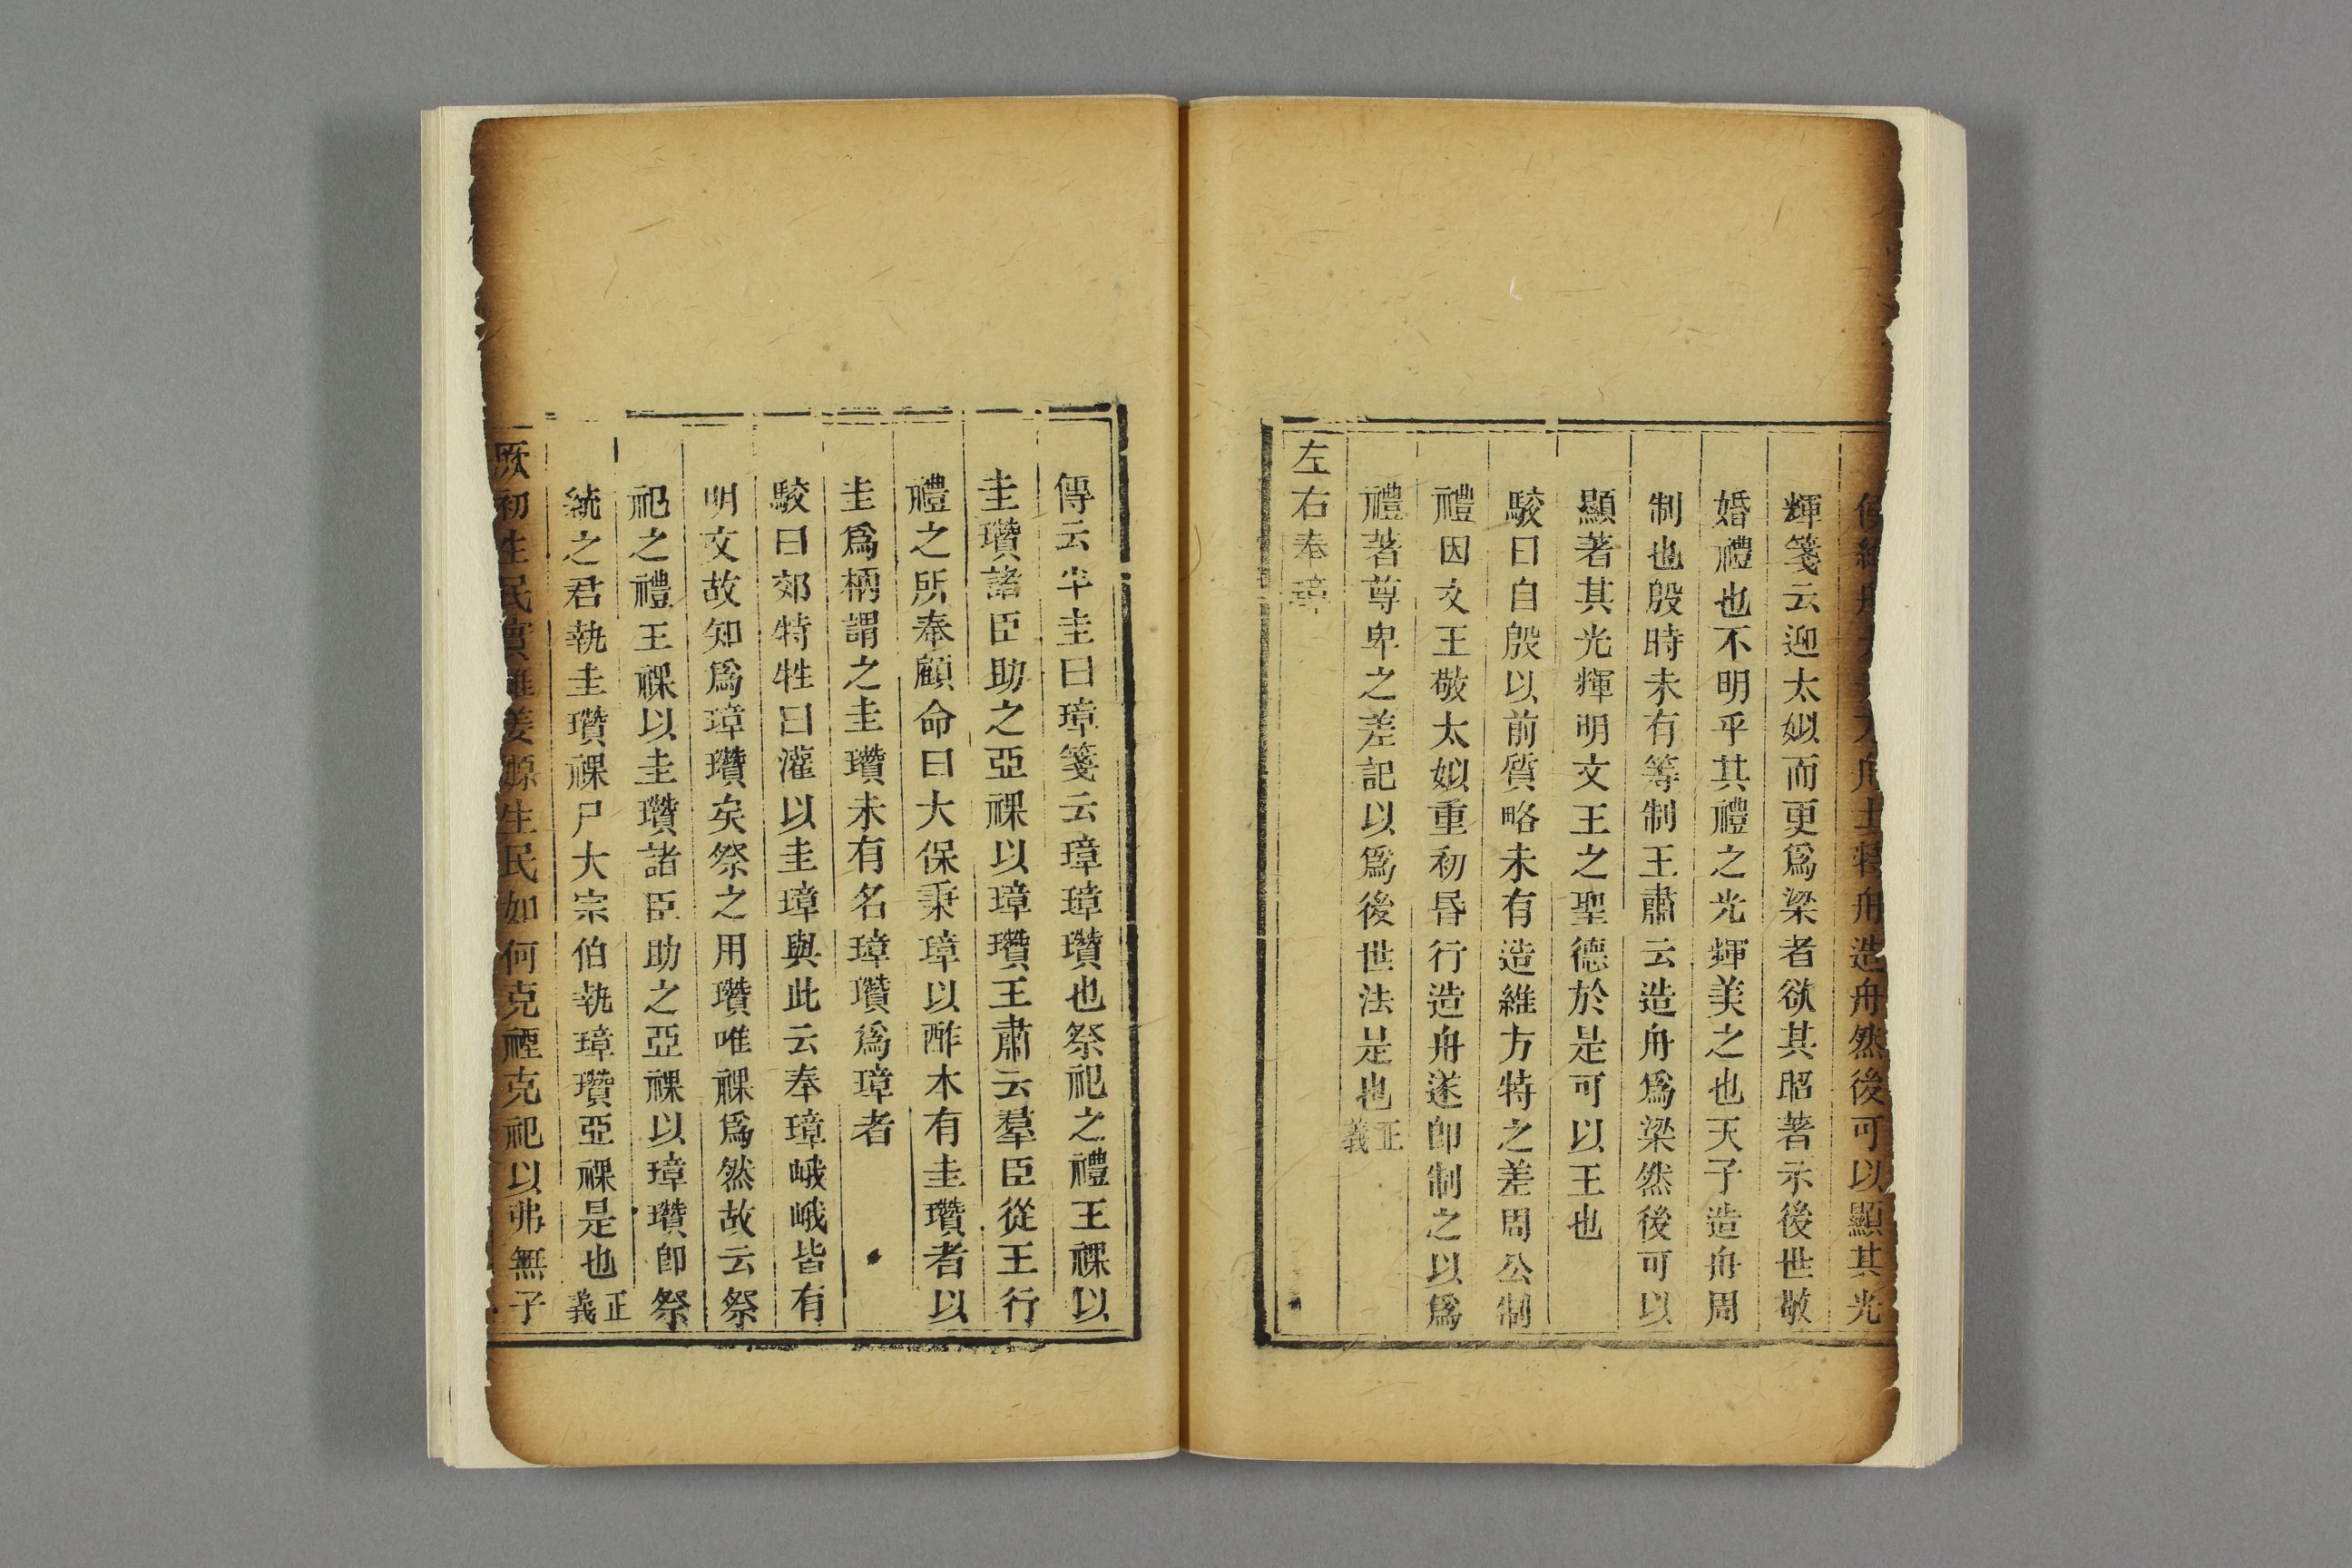 舟造舟然後可以顯其光
輝箋云迎太姒而更爲梁者欲其昭著示後世敬
婚禮也不明乎其禮之光輝美之也天子造舟周
制也殷時未有等制王肅云造舟爲梁然後可以
顯著其光輝明文王之聖德於是可以王也
駮曰自殷以前質略未有造維方特之差周公制
禮因文王敬太姒重初昏行造舟遂即制之以爲
禮著尊卑之差記以爲後世法是也正義
左右奉璋
傳云半圭曰璋箋云璋璋瓚也祭祀之禮王祼以
圭瓚諸臣助之亞祼以璋瓚王肅云羣臣從王行
禮之所奉顧命曰大保秉璋以酢木有圭瓚者以
圭爲柄謂之圭瓚未有名璋瓚爲璋者
駮曰郊特牲曰灌以圭璋與此云奉璋峨峨皆有
明文故知爲璋瓚矣祭之用瓚唯祼爲然故云祭
祀之禮王祼以圭瓚諸臣助之亞祼以璋瓚即祭
統之君執圭瓚祼尸大宗伯執璋瓚亞祼是也正義
厥初生民實維姜嫄生民如何克禋克祀以弗無子